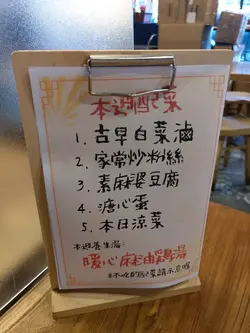 本週配菜
1. 古早白菜滷
2. 家常炒粉絲
3. 素麻婆豆腐
4. 溏心蛋
5. 本日涼菜
本週養生湯：
暖心麻油雞湯
*不吃的配菜請示意喔